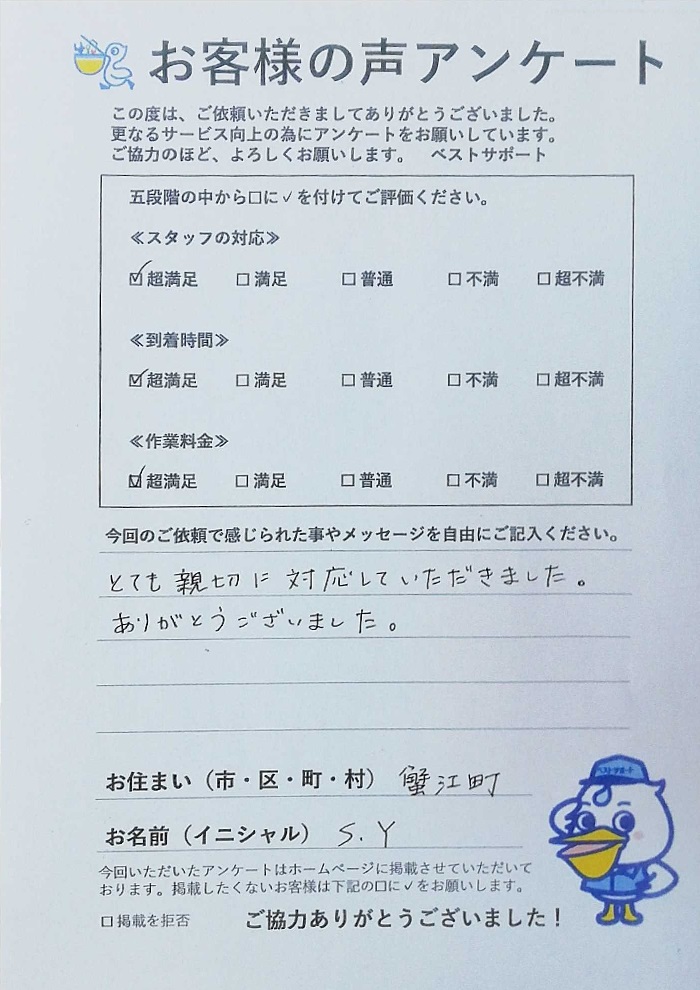 お客様の声アンケート
この度は、ご依頼いただきましてありがとうございました。
更なるサービス向上の為にアンケートをお願いしています。
ご協力のほど、よろしくお願いします。 ベストサポート
五段階の中から☐に✓を付けてご評価ください。
≪スタッフの対応≫
☑超満足 ☐満足 ☐普通 ☐不満 ☐超不満
≪到着時間≫
☑超満足 ☐満足 ☐普通 ☐不満 ☐超不満
≪作業料金≫
☑超満足 ☐満足 ☐普通 ☐不満 ☐超不満
今回のご依頼で感じられた事やメッセージを自由にご記入ください。
とても親切に対応していただきました。
ありがとうございました。
お住まい（市・区・町・村） 蟹江町
お名前（イニシャル） S.Y
今回いただいたアンケートはホームページに掲載させていただいて
おります。掲載したくないお客様は下記の☐に✓をお願いします。
☐掲載を拒否 ご協力ありがとうございました！
ベストサポート